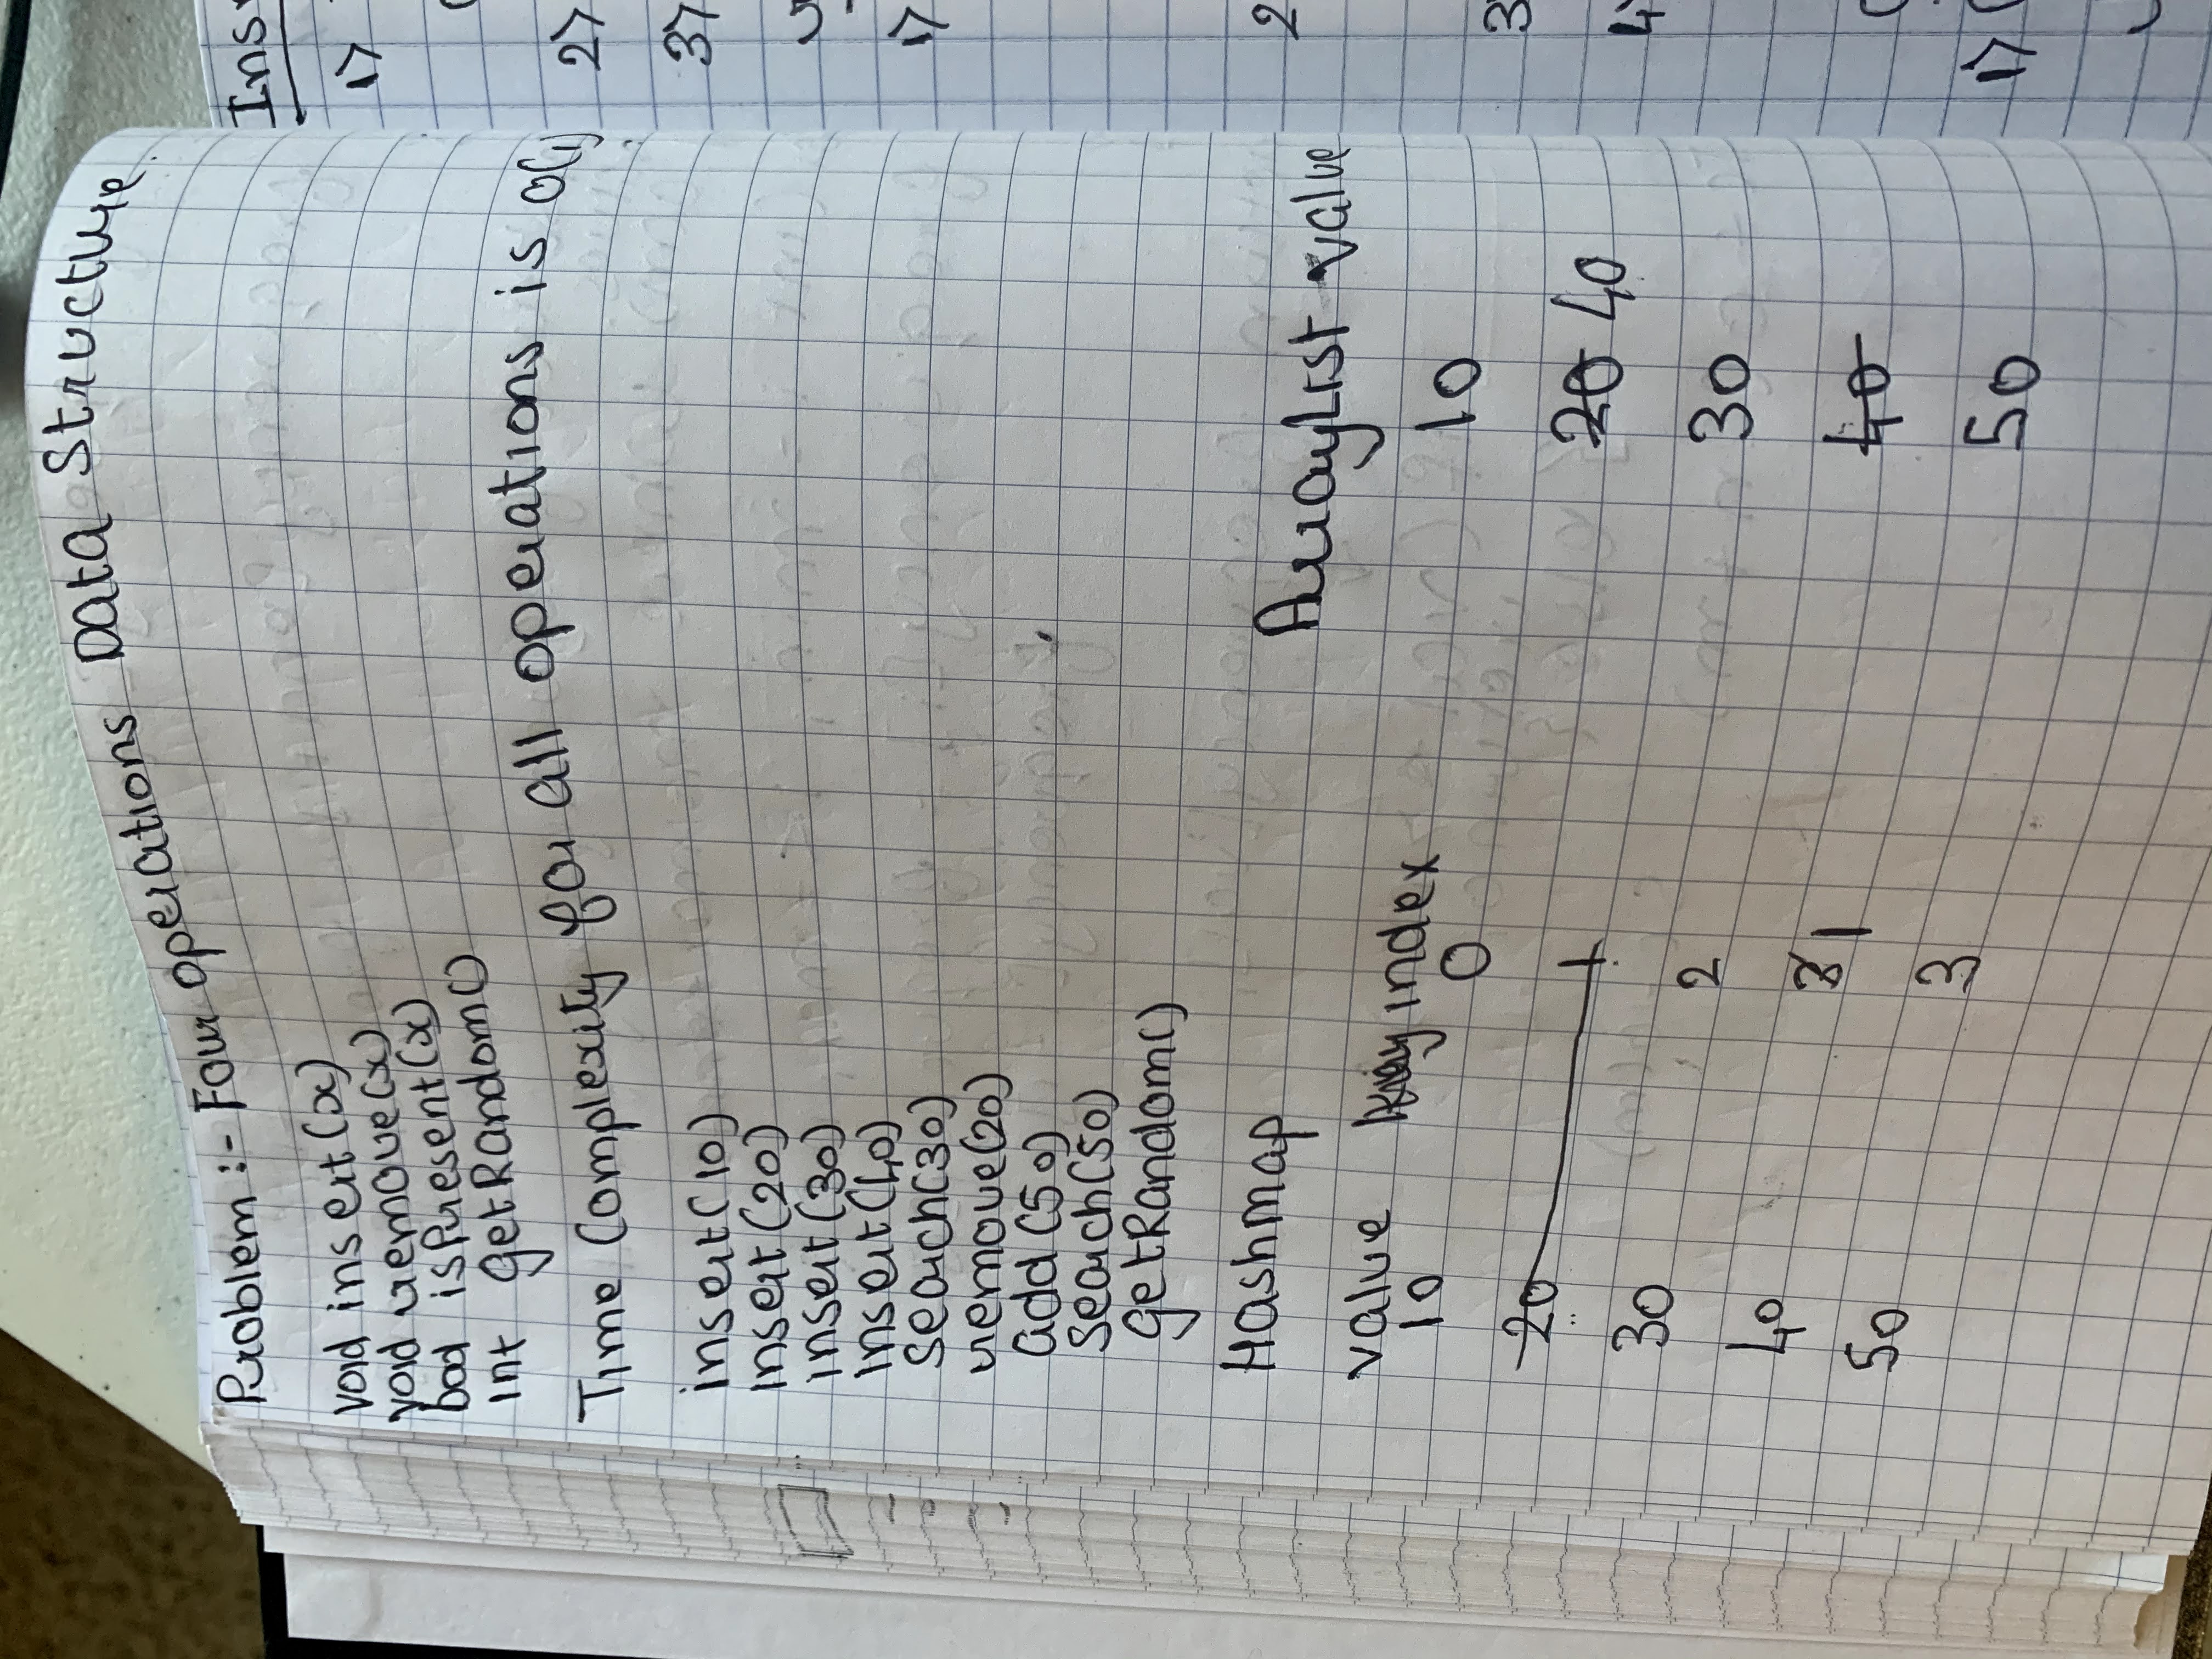 Problem :- Four operations Data Structure.
void insert(x)
void remove(x)
bool isPresent(x)
int getRandom()
Time Complexity for all operations is O(1)
insert(10)
insert(20)
insert(30)
insert(40)
search(30)
remove(20)
add(50)
search(50)
getRandom()
Hashmap ArrayList value
value index
10 0 10
20 1 20 40
30 2 30
40 3 1 40
50 3 50
Ins
1)
2)
3)
1)
2
3
4
1)